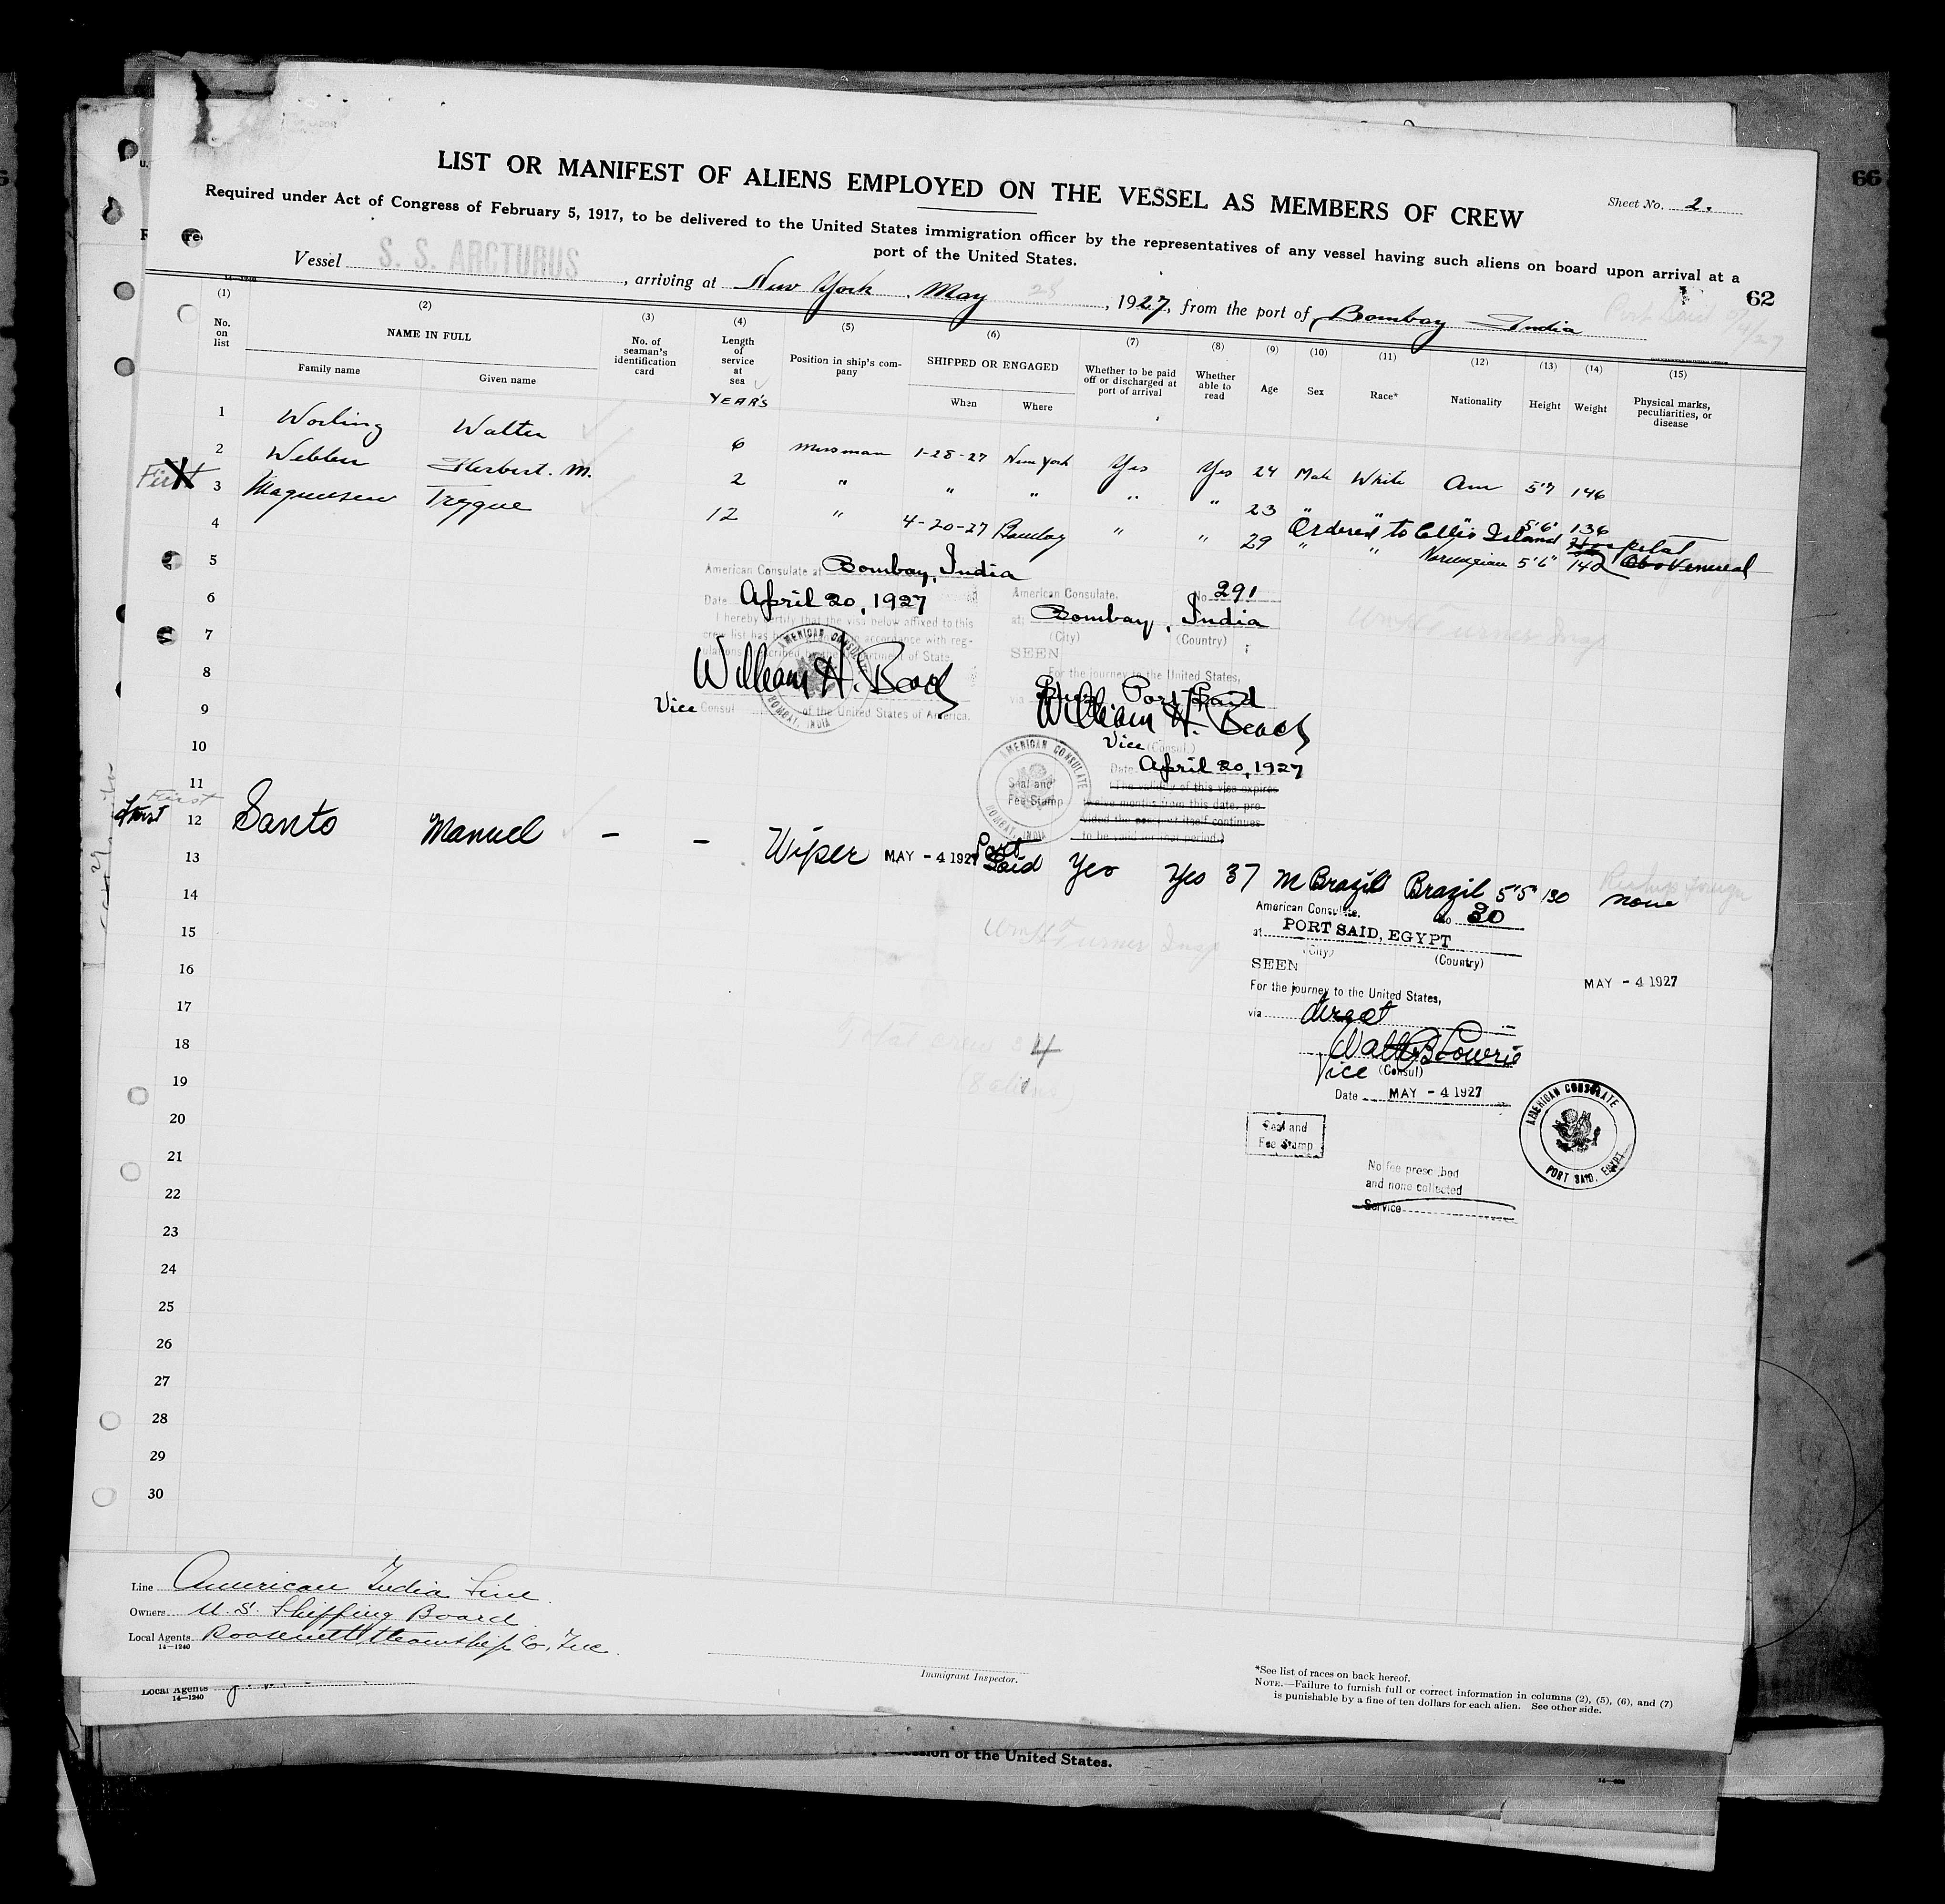 66
LIST OR MANIFEST OF ALIENS EMPLOYED ON THE VESSEL AS MEMBERS OF CREW
Sheet No. 2.
Required under Act of Congress of February 5, 1917, to be delivered to the United States immigration officer by the representatives of any vessel having such aliens on board upon arrival at a
port of the United States.
Vessel S. S. ARCTURUS, arriving at New York, May 28, 1927, from the port of Bombay India
62
(1) (2) (3) (4) (5) (6) (7) (8) (9) (10) (11) (12) (13) (14) (15)
No. on list
NAME IN FULL
Family name Given name
No. of seaman's identification card
Length of service at sea
YEAR'S
Position in ship's company
SHIPPED OR ENGAGED
When Where
Whether to be paid off or discharged at port of arrival
Whether able to read
Age
Sex
Race*
Nationality
Height
Weight
Physical marks, peculiarities, or disease
1 Worling Walter 6 messman 1-28-27 New York Yes Yes 24 Male White Am 5'7 146
2 Webber Herbert. M. 2 " " " " " 23 " " " 5'6" 136
Ordered to Ellis Island Hospital
First X 3 Magnussen Trygve 12 " 4-20-27 Bombay " " 29 " " Norwegian 5'6" 140
4
5
6
7
8
9
10
11
American Consulate at Bombay, India
Date April 20, 1927
I hereby certify that the visa below affixed to this
crew list has been in accordance with reg-
ulations prescribed by the Department of State.
William H. Beach
Vice Consul of the United States of America.
AMERICAN CONSULATE
BOMBAY, INDIA
American Consulate, No. 291
at Bombay, India
(City) (Country)
SEEN
For the journey to the United States,
via Port Said
William H. Beach
Vice (Consul.)
Date April 20, 1927
(The validity of this visa expires
twelve months from this date, pro-
vided the passport itself continues
to be valid for that period.)
AMERICAN CONSULATE
Seal and
Fee Stamp
BOMBAY, INDIA
First
First 12 Santo Manuel - - Wiper MAY - 4 1927 Port Said Yes Yes 37 M Brazil Brazil 5'5" 130 none
13
14
15
16
17
18
19
20
21
22
23
24
25
26
27
28
29
30
Wm H Turner Insp
Total crew 34
(8 aliens)
American Consulate. No 30
at PORT SAID, EGYPT
(City) (Country)
SEEN
MAY - 4 1927
For the journey to the United States,
via direct
Vice (Consul)
Date MAY - 4 1927
AMERICAN CONSULATE
PORT SAID, EGYPT
Seal and
Fee Stamp
No fee prescribed
and none collected
Service
Line American India Line.
Owners U. S. Shipping Board
Local Agents Roosevelt Steamship Co. Inc.
14—1240
Immigrant Inspector.
*See list of races on back hereof.
NOTE.—Failure to furnish full or correct information in columns (2), (5), (6), and (7)
is punishable by a fine of ten dollars for each alien. See other side.
Local Agents
14—1240
of the United States.